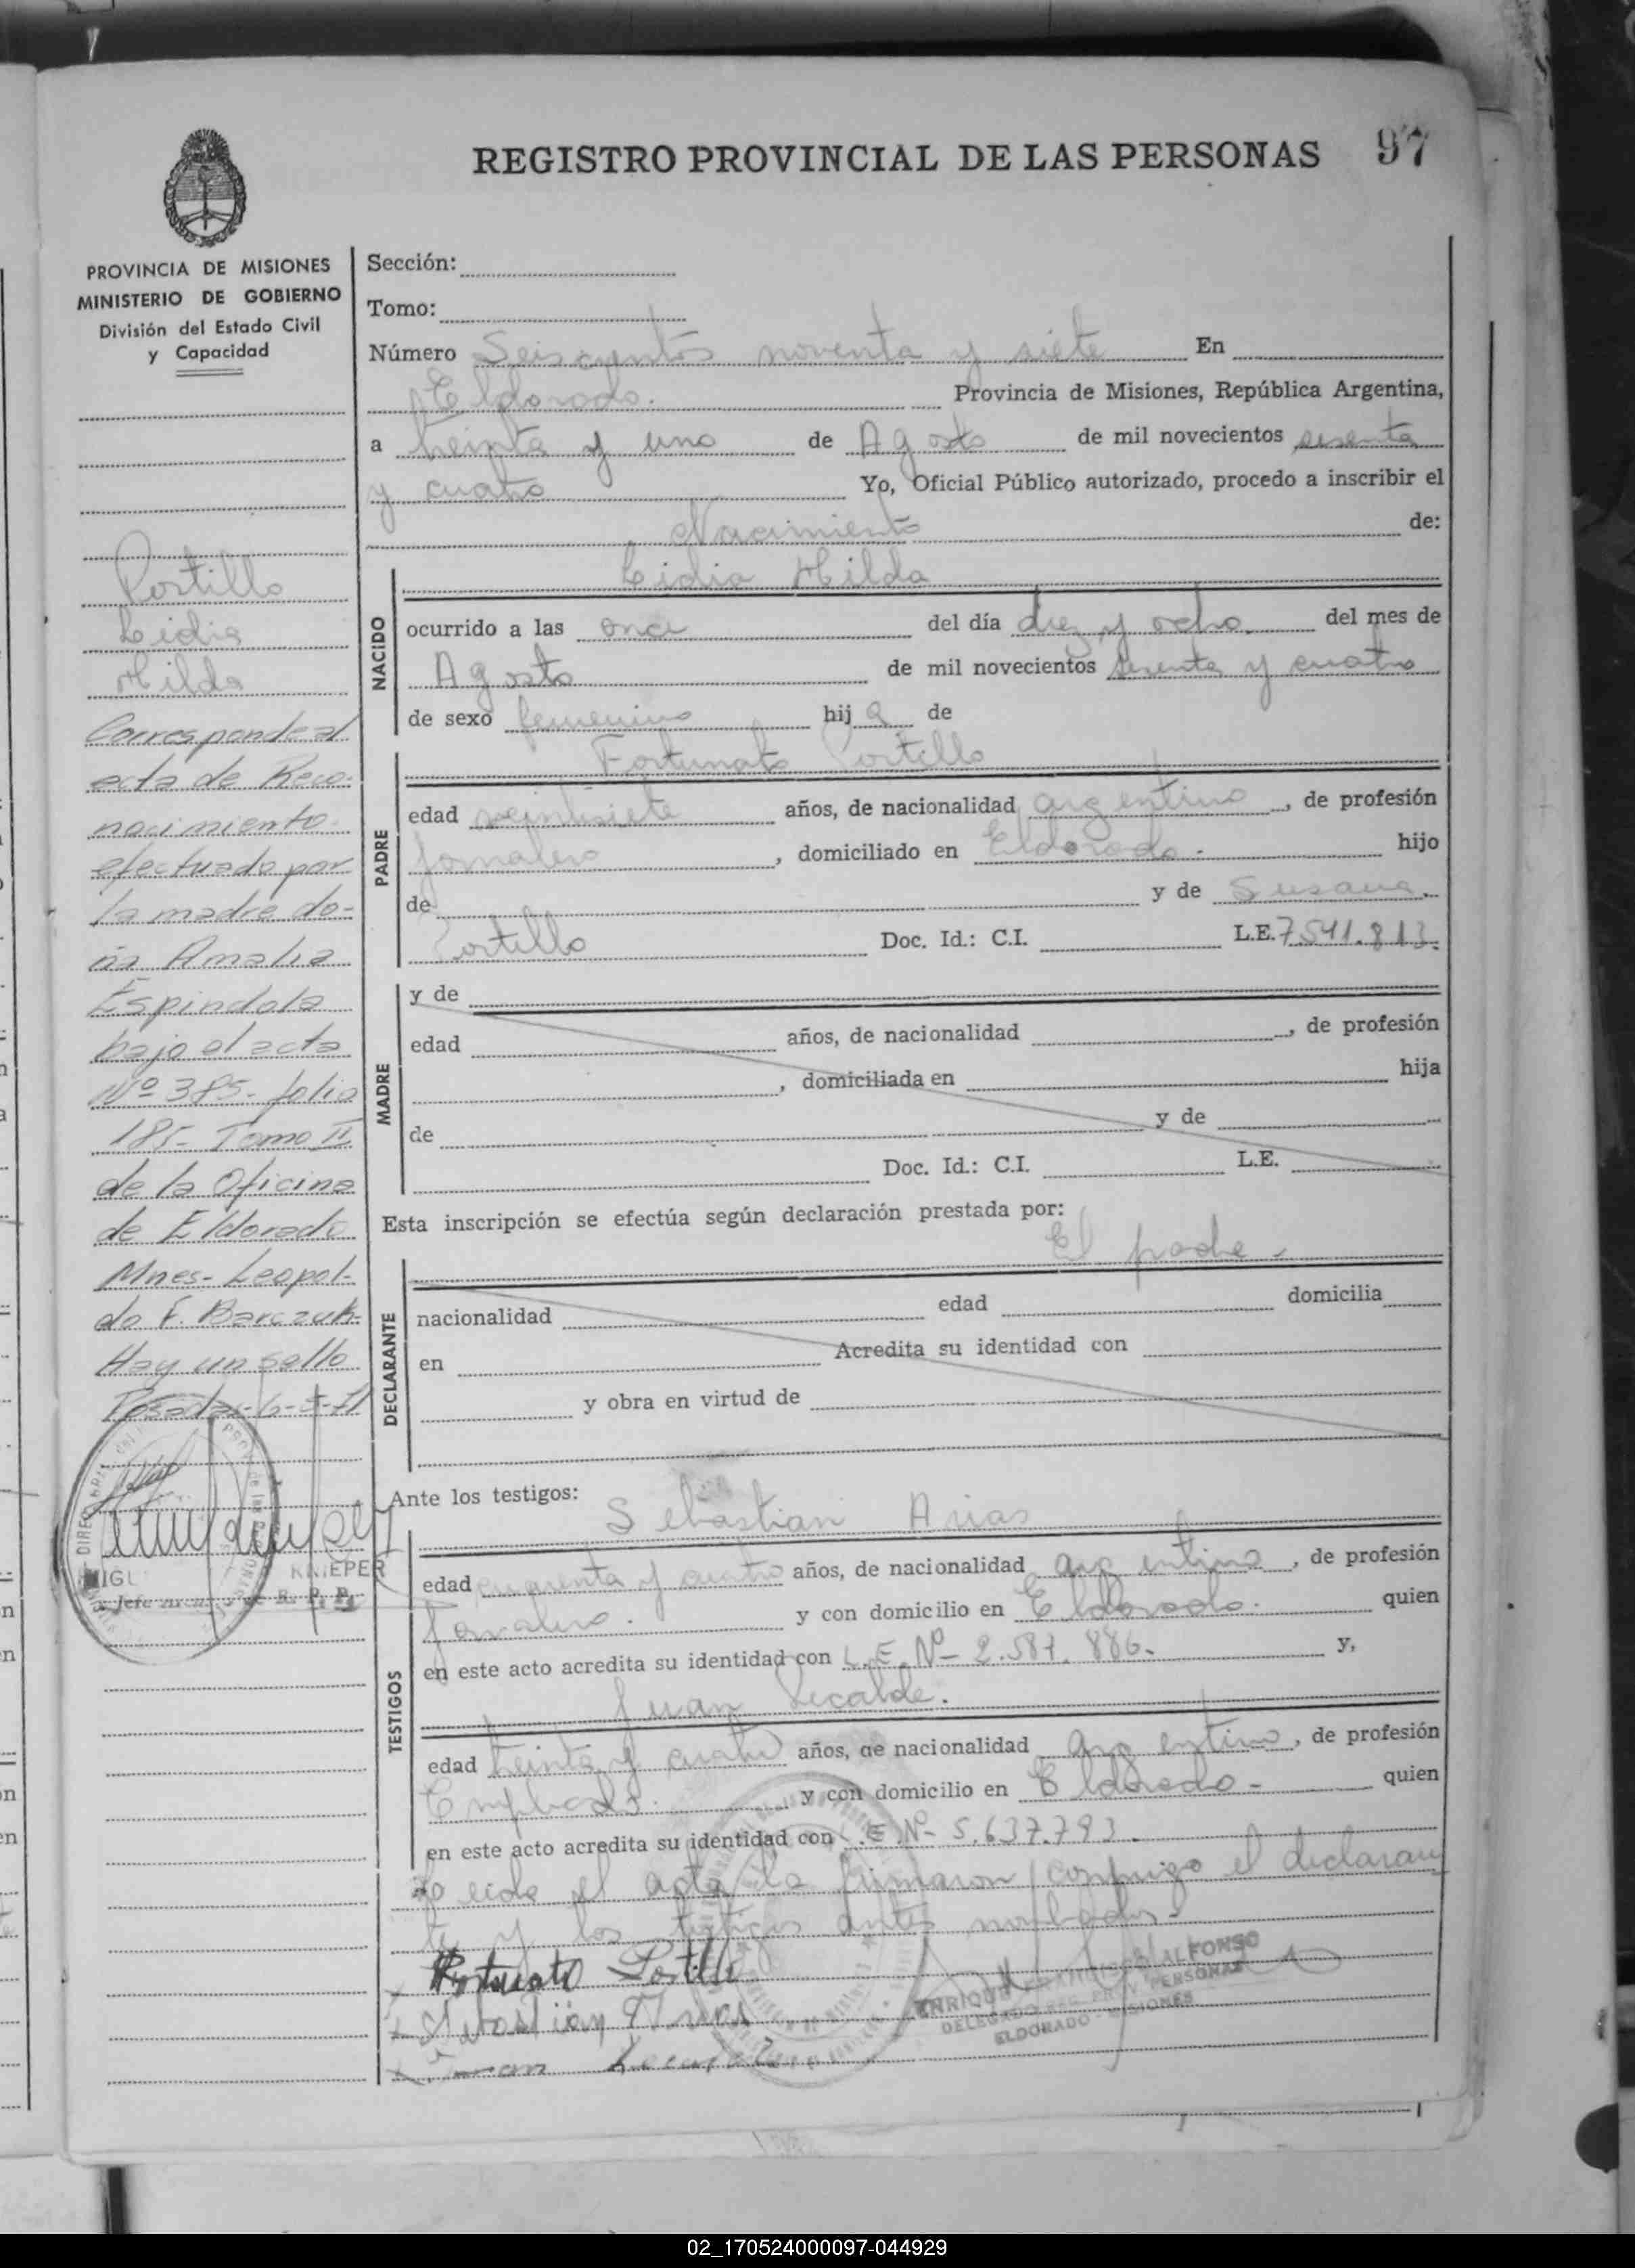 REGISTRO PROVINCIAL DE LAS PERSONAS 97
PROVINCIA DE MISIONES
MINISTERIO DE GOBIERNO
División del Estado Civil
y Capacidad
Portillo
Lidia
Hilda
Corresponde al
acta de Reco-
nocimiento
efectuado por
la madre do-
ña Amalia
Espindola
bajo el acta
Nº 385- folio
185- Tomo II
de la Oficina
de Eldorado
Mnes- Leopol-
do F. Barczuk-
Hay un sello
Posadas-6-5-71
KNIEPER
Sección:
Tomo:
Número Seiscientos noventa y siete En
Eldorado. Provincia de Misiones, República Argentina,
a treinta y uno de Agosto de mil novecientos sesenta
y cuatro Yo, Oficial Público autorizado, procedo a inscribir el
Nacimiento de:
Lidia Hilda
NACIDO
ocurrido a las once del día diez y ocho del mes de
Agosto de mil novecientos sesenta y cuatro
de sexo femenino hija de
Fortunato Portillo
PADRE
edad veintisiete años, de nacionalidad argentino, de profesión
Jornalero, domiciliado en Eldorado. hijo
de y de Susana
Portillo Doc. Id.: C.I. L.E. 7.541.813.
MADRE
y de
edad años, de nacionalidad , de profesión
, domiciliada en hija
de y de
Doc. Id.: C.I. L.E.
Esta inscripción se efectúa según declaración prestada por:
El padre.
DECLARANTE
nacionalidad edad domicilia
en Acredita su identidad con
y obra en virtud de
Ante los testigos:
Sebastian Arias
TESTIGOS
edad cuarenta y cuatro años, de nacionalidad argentino, de profesión
Jornalero. y con domicilio en Eldorado. quien
en este acto acredita su identidad con L.E. Nº- 2.587.886. y,
Juan Recalde.
edad treinta y cuatro años, de nacionalidad argentino, de profesión
Empleado. y con domicilio en Eldorado- quien
en este acto acredita su identidad con L.E. Nº- 5.637.793.
Leida el acta la firmaron conmigo el declaran
te y los testigos antes nombrados-
Fortunato Portillo
Sebastian Arias
Juan
ENRIQUE ALFONSO
DELEGADO REG. PROV. PERSONAS
ELDORADO - MISIONES
02_170524000097-044929